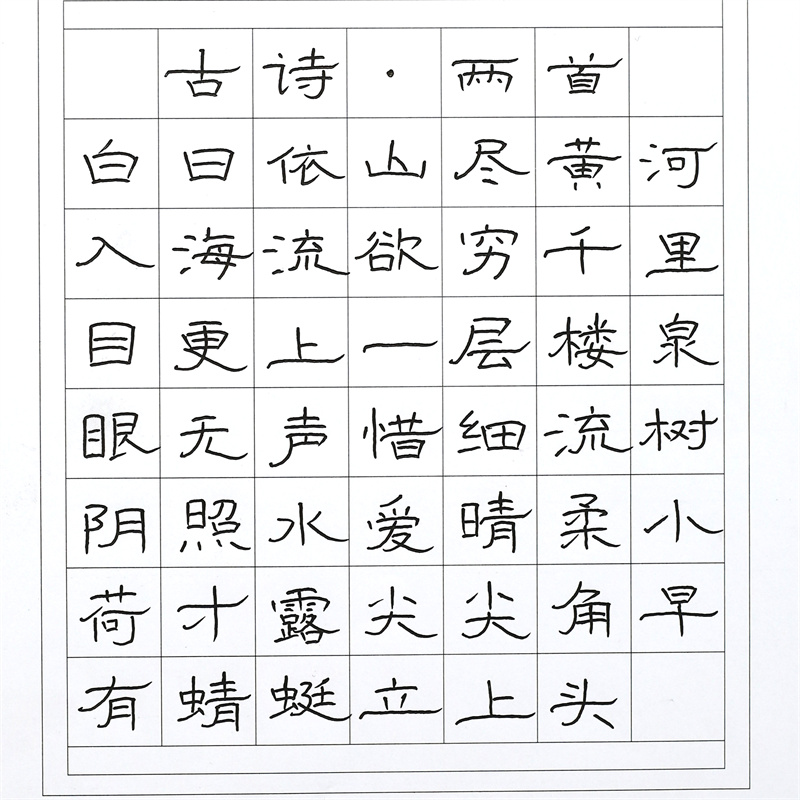 古诗·两首
白日依山尽黄河
入海流欲穷千里
目更上一层楼泉
眼无声惜细流树
阴照水爱晴柔小
荷才露尖尖角早
有蜻蜓立上头